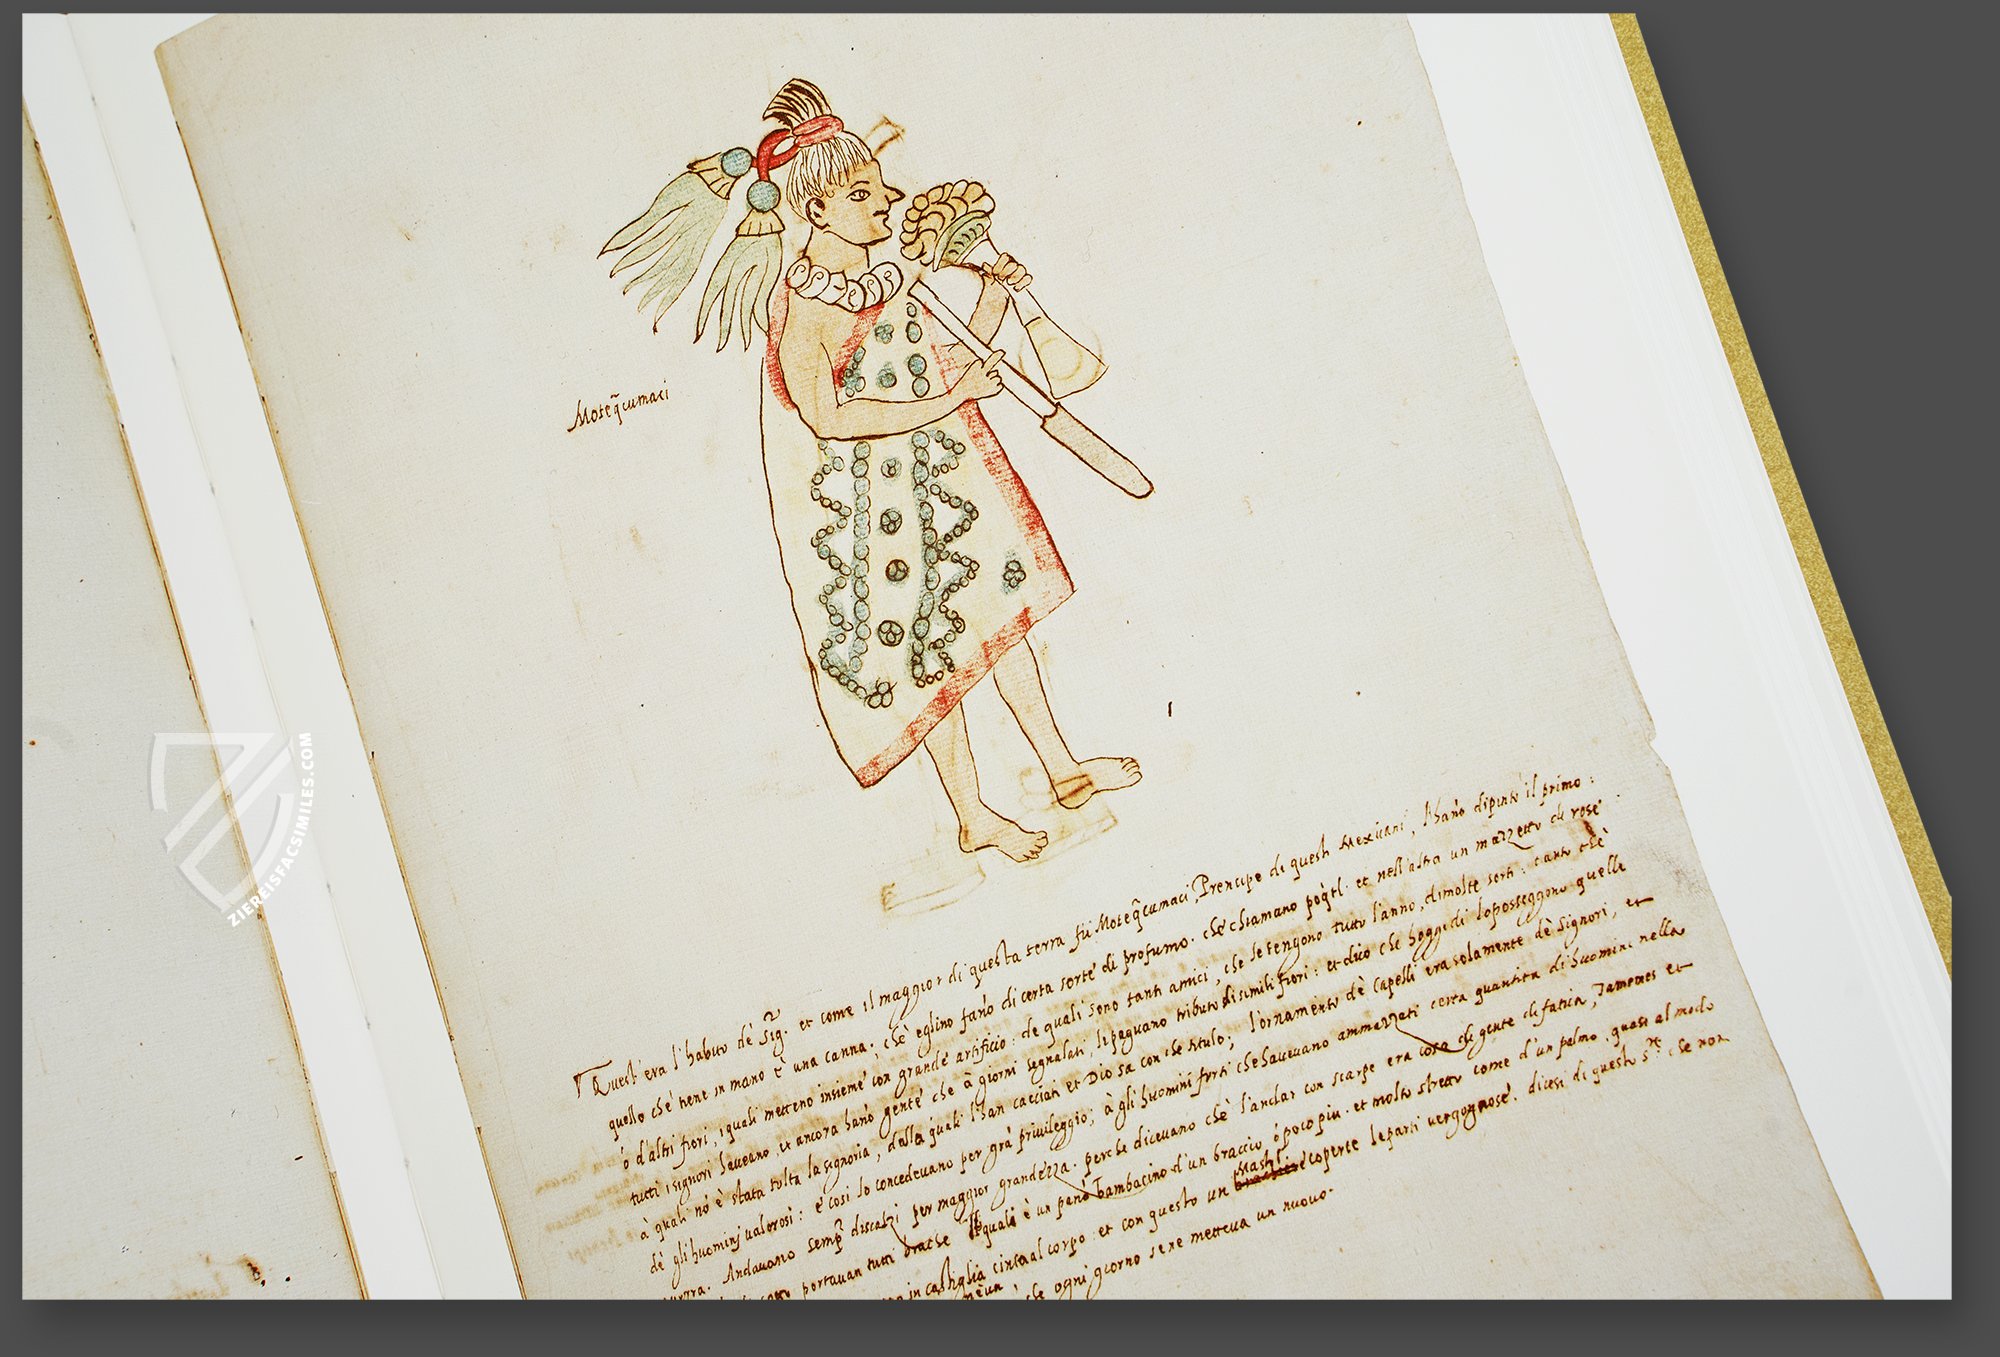 Moteq̃cumaci
Quest'era l'habito dè Sig.ri et come il maggior di questa terra fù Moteq̃cumaci, Prencipe di questi Mexicani, l'hanò dipinto il primo:
quello chè tiene in mano è una canna, chè eglino fanò di certa sorte di profumo. chè chiamano poq̃tl. et nell'altra un mazzetto di rose
ò d'altri fiori, i quali metteno insieme con grandè artificio: de quali sono tanti amici, che le tengono tutto l'anno, di molte sorti: tanto chè
tutti i signori haveano, et ancora hanò gente chè à giorni segnalati, le pagauano tributo di simili fiori: et dico che hoggi di lo posseggono quelle
à quali nò è stata tolta la signoria, dalla quali l'han cacciati et Dio sa con che titulo; l'ornamento dè Capelli era solamente dè Signori, et
dè gli huominj ualorosi: e così lo concedeuano per grà priuileggio; à gli huomini forti che haueuano ammazzati certa quantità di huomini nella
guerra. Andauano semp̃ discalzi per maggior grandezza. perche diceuano chè l'andar con scarpe era cosa di gente di fatica, Tamemes et
portauan tutti brache Il quali è un panò bambacino d'un braccio ò poco piu. et molto stretto come d'un palmo. quasi al modo
in castiglia cinta al corpo: et con questo un Mastl. coperte le parti uergognose. dicesi di questo s.re che non
chè ogni giorno se ne metteua un nuouo.
ZIEREISFACSIMILES.COM